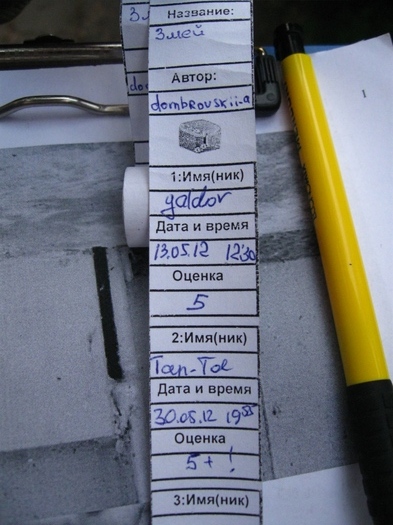 Название:
Змей
Автор:
dombrovskii-a
1:Имя(ник)
galdor
Дата и время
13.05.12 12:30
Оценка
5
2:Имя(ник)
Тап-Toe
Дата и время
30.05.12 19 55
Оценка
5+!
3:Имя(ник)